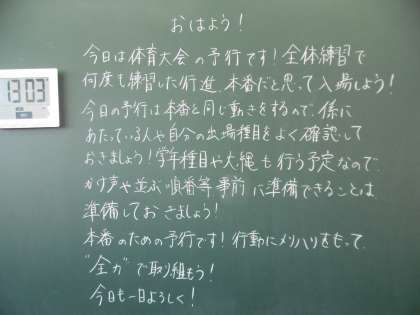 おはよう！
今日は体育大会の予行です！全体練習で
何度も練習した行進、本番だと思って入場しよう！
今日の予行は本番と同じ動きをするので、係に
あたっている人や自分の出場種目をよく確認して
おきましょう！学年種目や大縄も行う予定なので、
かけ声や並ぶ順番等事前に準備できることは
準備しておきましょう！
本番のための予行です！行動にメリハリをもって、
"全力"で取り組もう！
今日も一日よろしく！
13:03